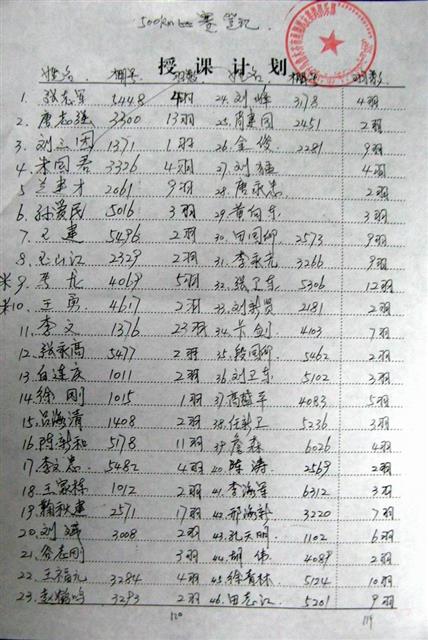 500km 赛 笔记
授课计划
姓名 棚号 羽数 姓名 棚号 羽数
1. 张志军 5448 4羽 24. 刘峰 3178 4羽
2. 唐志强 3300 13羽 25. 肖惠国 2451 2羽
3. 刘 1371 1羽 26. 金俊 2281 9羽
4. 朱同君 3326 4羽 27. 刘 4羽
5. 兰建才 2061 9羽 28. 唐永 2羽
6. 孙爱民 5016 3羽 29. 黄 3羽
7. 王建 5496 2羽 30. 田 2573 9羽
8. 江 2329 2羽 31. 李永 3266 9羽
※9. 李龙 4069 5羽 32. 张卫东 5306 12羽
※10. 王勇 4617 2羽 33. 刘新贤 2181 2羽
11. 李文 1376 23羽 34. 卞剑 4103 7羽
12. 张永高 5477 2羽 35. 段 5462 2羽
13. 白连庆 1011 2羽 36. 刘卫东 5102 3羽
14. 徐刚 1015 1羽 37. 高 平 4083 5羽
15. 吕海清 1408 2羽 38. 任新卫 5236 3羽
16. 陈新和 5178 11羽 39. 詹森 6026 4羽
17. 李文忠 5482 4羽 40. 陈涛 2569 2羽
18. 王家栋 1012 2羽 41. 李海军 6312 3羽
19. 鞠秋建 2571 17羽 42. 邢海新 3220 7羽
20. 刘 3008 2羽 43. 孔天明 1102 6羽
21. 佟志刚 3羽 44. 胡伟 4089 2羽
22. 王福九 3284 4羽 45. 徐青林 5124 10羽
23. 鸣 3293 2羽 46. 田志江 5201 9羽
120 119